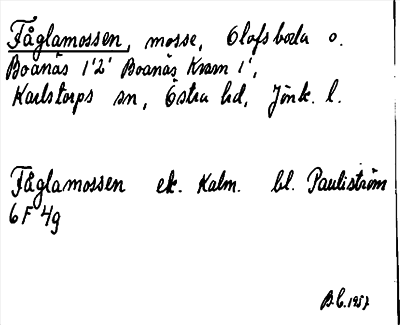 Fåglamossen, mosse, Olofsboda o.
Boanäs 1'2' Boanäs Kvarn 1',
Karlstorps sn, Östra hd, Jönk. l.
Fåglamossen ek. Kalm. bl. Pauliström
6F 4g
B.C. 1957